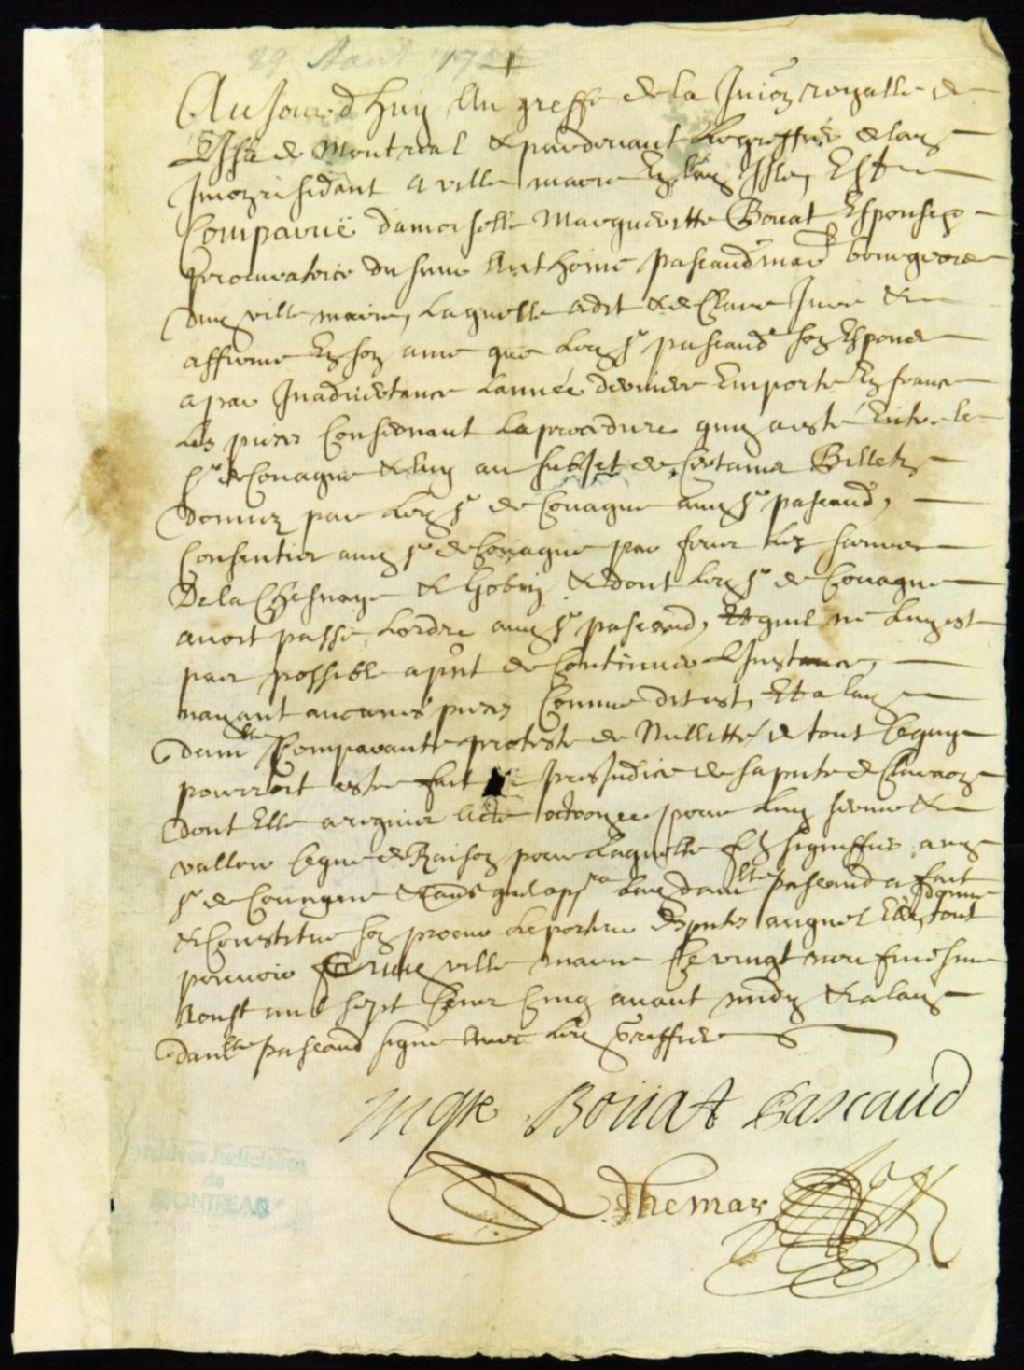 29 Aoust 1705
Aujourd'huy Au greffe de la Jurion royalle de
L'Isle de Montreal & pardevant Le greffier de lad
Jurion residant a ville marie En lad Isle, Est
Comparuë damoiselle Margueritte Bouat Espouse &
procuratrice du sieur Anthoine pascaud mard bourgeois
dud ville marie, Laquelle a dit & declaré Juré &
affirmé En son ame que Led Sr pascaud son Espoux
a par Inadvertance L'année derniere Emporté En france
Les pieces Consernant La procedure quy a esté Entre le
Sr de Couagne & luy au subjet de Certains Billets
donnez par Led Sr de Couagne aud Sr pascaud,
Consentis aud Sr de Couagne par feux Les sieurs
De la Chesnaye & Gobin & dont Led Sr de Couagne
avoit passé L'ordre aud Sr pascaud, Et quil ne luy est
pas possible a pnt de Continuer L'Instance,
nayant aucunes pieces Comme dit est, Et a lad
damlle Comparante protesté de Nullitté de tout Ce quy
pourroit estre fait au prejudice de sa pnte declaraon
dont Elle a requis acte octroyé pour luy servir &
valloir Ce que de Raison pour Laquelle fe signiffier aud
Sr de Couagne & a lad damlle pascaud a fait
& Constitué son procur Le porteur Des pntes auquel Elle donne tout
pouvoir fait aud ville marie Ce vingt neufviesme
Aoust mil sept Cens Cinq avant midy & a lad
damlle pascaud signé Avec Led Greffier
Mgte Bouat Pascaud
Adhemar
Archives Judiciaires
de
MONTREAL